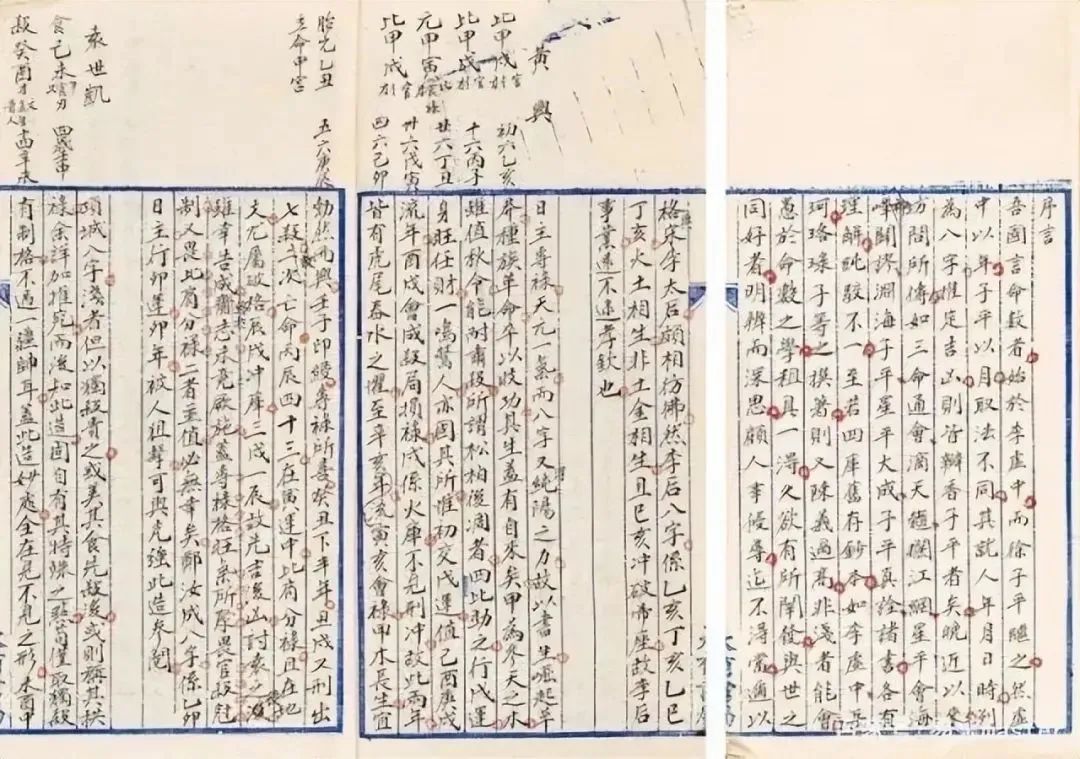 序言
吾國言命數者始於李虛中而徐子平繼之然虛
中以年子平以月取法不同其託人年月日時列
為八字推定吉凶則皆瓣香子平者矣晚近以來
坊間所傳如三命通會滴天髓闌江網星平會海
淵海子平星平大成子平真詮諸書各有
理解純駁不一至若四庫舊存鈔本如李虛中
珞琭子等之撰著則又陳義過高非淺者能會
愚於命數之學粗具一得久欲有所闡發與世之
同好者明辨而深思顧人事侵尋迄不得當適以
格宋李太后頗相彷彿然李后八字係乙亥丁亥乙巳
丁亥火土相生非土金相生且巳亥冲破帝座故李后
事業遠不逮孝欽也
黃興
比甲戌官
比甲戌官
元甲寅
比甲戌官
初六乙亥
十六丙子
廿六丁丑
卅六戊寅
四六己卯
日主專祿天元一氣而八字又純陽之力故以書生崛起平
莽種族革命卒以收功其生蓋有自來矣甲為參天之木
雖值秋令能耐肅殺所謂松柏後凋者四比劫之行戊運
身旺任財一鳴驚人亦固其所惟初交戊運值己酉庚戌
流年酉戌會成殺局損祿戌係火庫不見刑冲故此兩年
皆有虎尾春水之懼至辛亥年流寅亥會祿甲木長生宜
胎元乙丑
立命申宮
五六庚辰
勃然而興壬子印綬專祿所喜癸丑下半年丑戌又刑出
七殺二次亡命丙辰四十三在寅運中比肩分祿且在地
支尤屬破格辰戌冲庫三戌一辰故先吉後凶討袁之役
雖幸告成爾志未竟歿施蓋專祿格旺氣所厚畏官殺剋
制又畏比肩分祿二者並值必無幸矣鄭汝成八字係乙卯
日主行卯運卯年被人狙擊可與克強此造參閱
袁世凱
食己未
殺癸酉
四壬申
十四辛未
項城八字淺者但以獨殺貴之或美其食先殺後或則稱其拱
祿余詳加推究而後知此造固自有其特殊之點苟僅取獨殺
有制格不過一疆帥耳蓋此造妙處全在見不見之形未酉中